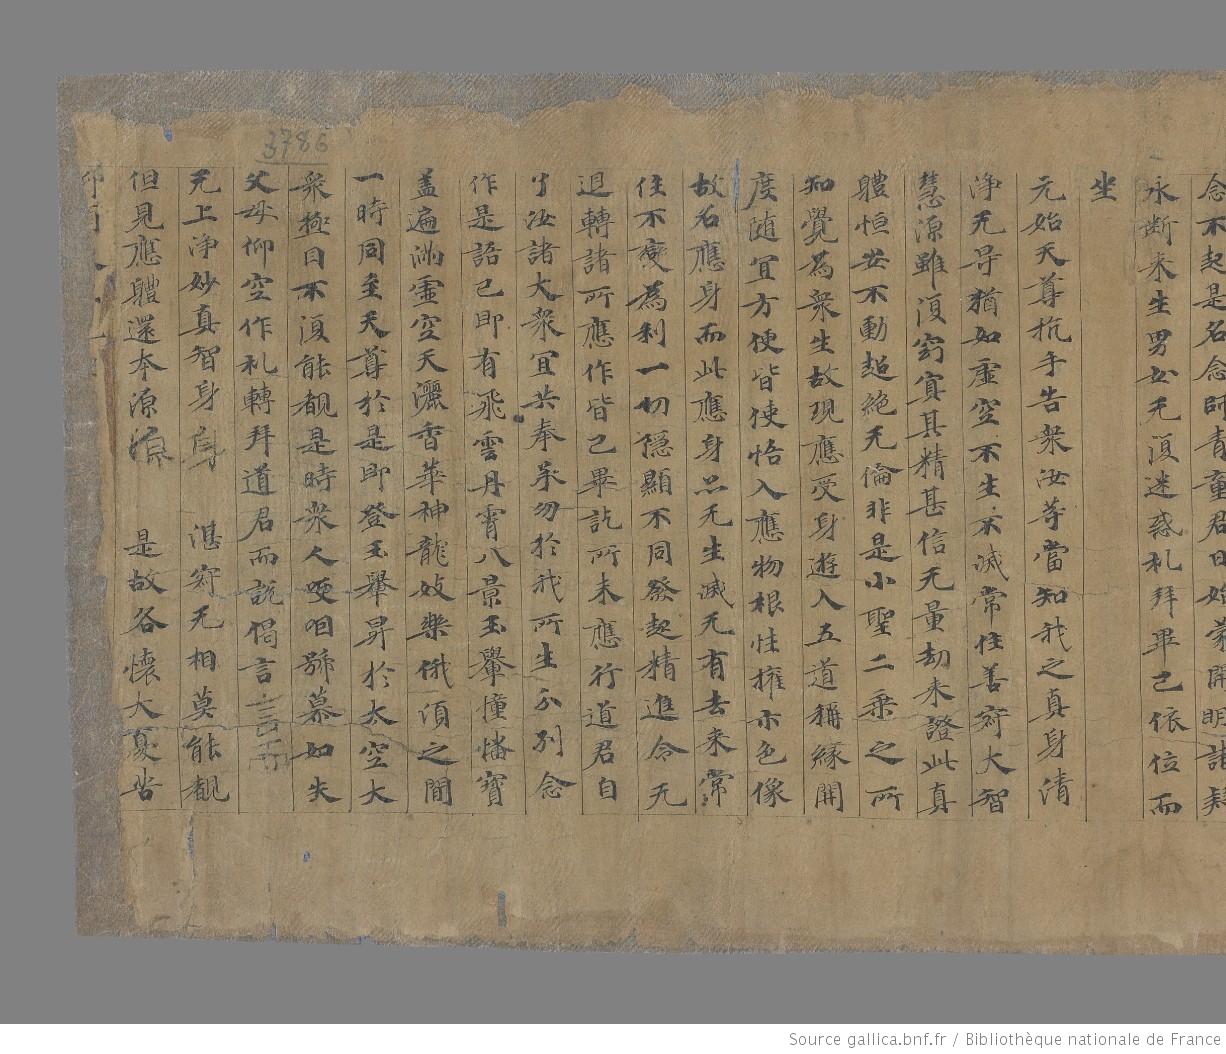 念不起是名念師青童君曰始蒙開明諸疑
永断来生男女无復迷惑礼拜畢已依位而
坐
元始天尊抗手告衆汝等當知我之真身清
浄无㝵猶如虚空不生不滅常住善寂大智
慧源雖復窈㝠其精甚信无量劫来證此真
軆恒安不動超絶无倫非是小聖二乗之所
知覺為衆生故現應受身遊入五道稱緣開
度随宜方便皆使悟入應物根性擁示色像
故名應身而此應身亦无生滅无有去来常
住不變為利一切隱顯不同發起精進令无
退轉諸所應作皆已畢訖所未應行道君自
了汝諸大衆宜共奉承勿於我所生分别念
作是語已即有飛雲丹霄八景玉轝幢幡寶
盖遍滿虚空天灑香華神龍妓樂俄頃之間
一時同至天尊於是即登玉轝昇於太空大
衆極目不復能覩是時衆人哽咽號慕如失
父母仰空作礼轉拜道君而説偈言言而
无上浄妙真智身身 湛寂无相莫能覩
但見應軆還本源源 是故各懷大憂苦
3786
Source gallica.bnf.fr / Bibliothèque nationale de France